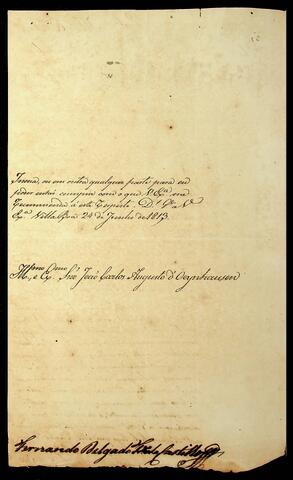 Trucia, ou em outra qualquer parte para eu
poder então cumprir com o que V.Ex.ª me
recomenda á este respeito. D.s G.e a V.
Ex.ª Villa Boa 24 de Junho de 1813.
Ill.mo e Ex.mo S.r João Carlos Augusto d'Oeynhausen
Fernando Delgado Fr.e de Castilho